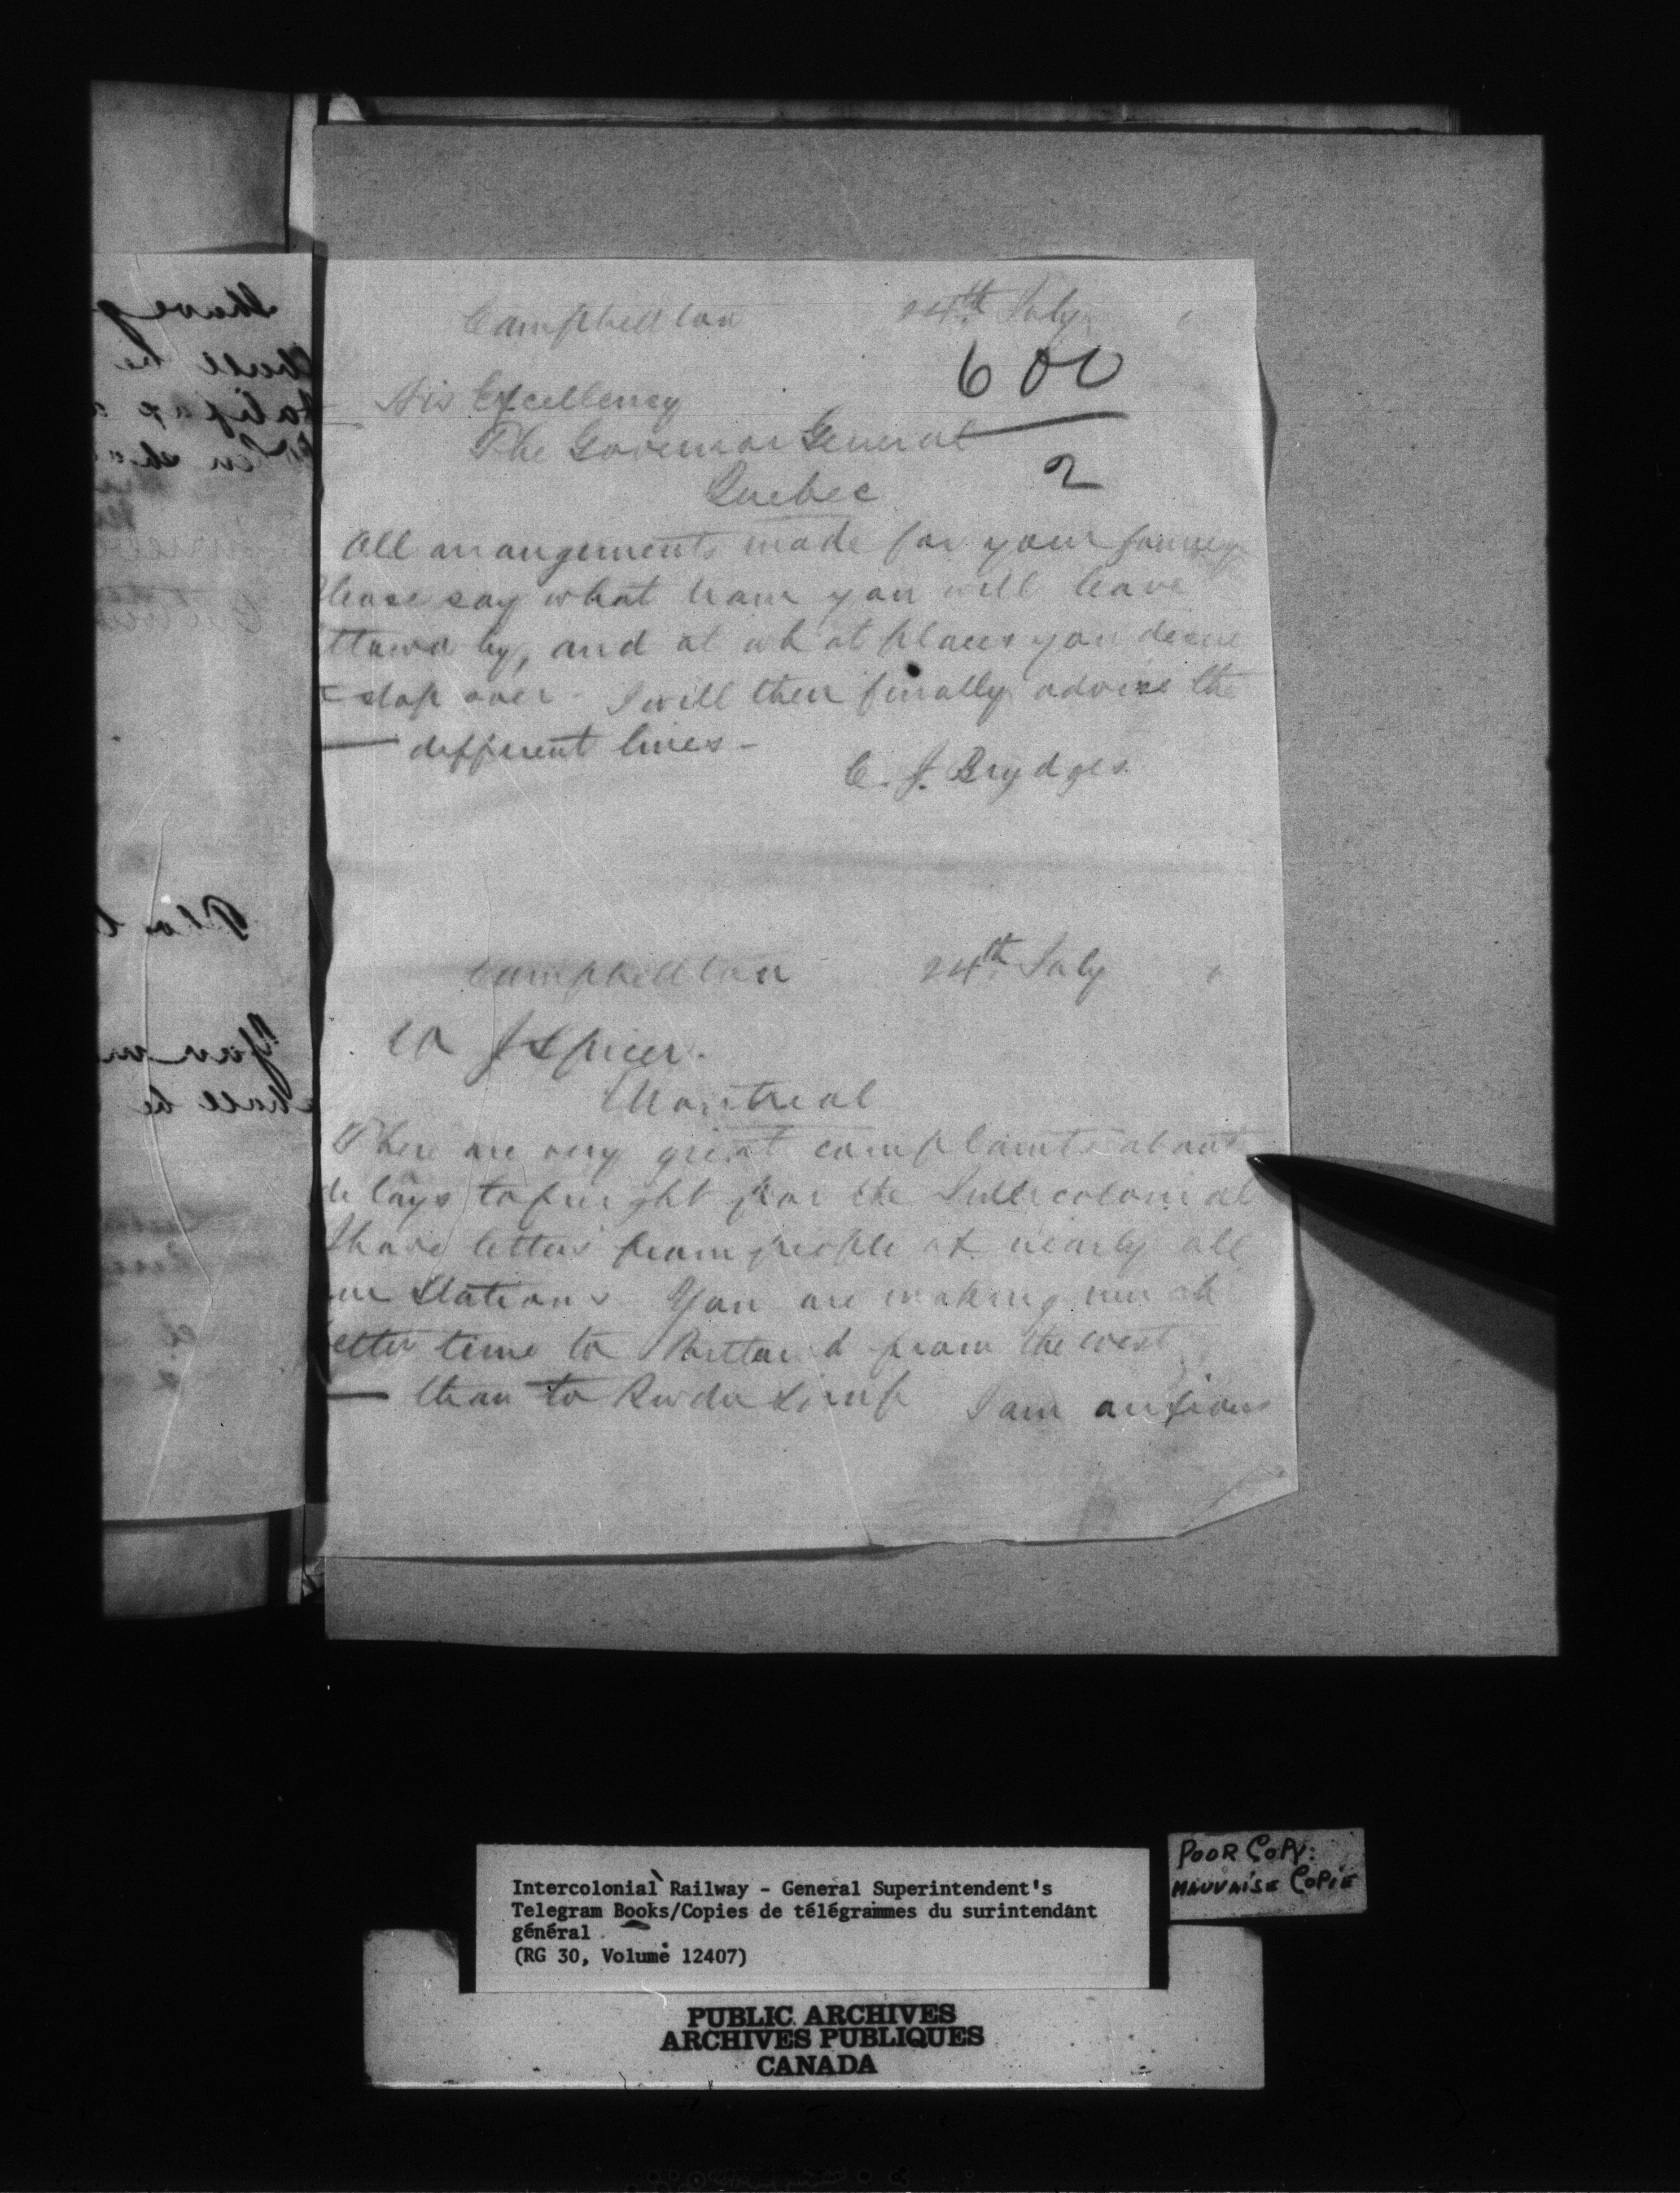 Campbellton 24th July
600
His Excellency
The Governor General
2
Quebec
All arrangements made for your journey
lease say what train you will leave
ttawa by, and at what places you desire
stop over - I will then finally advise the
different lines -
C. J. Brydges.
Campbellton 24th July
W J Spicer.
Montreal
There are very great complaints about
delays to freight for the Intercolonial
I have letters from people at nearly all
our Stations You are making much
etter time to Portland from the west
than to Riv du Loup I am anxious
Intercolonial Railway - General Superintendent's
Telegram Books/Copies de télégrammes du surintendant
général
(RG 30, Volume 12407)
POOR COPY:
MAUVAISE COPIE
PUBLIC ARCHIVES
ARCHIVES PUBLIQUES
CANADA